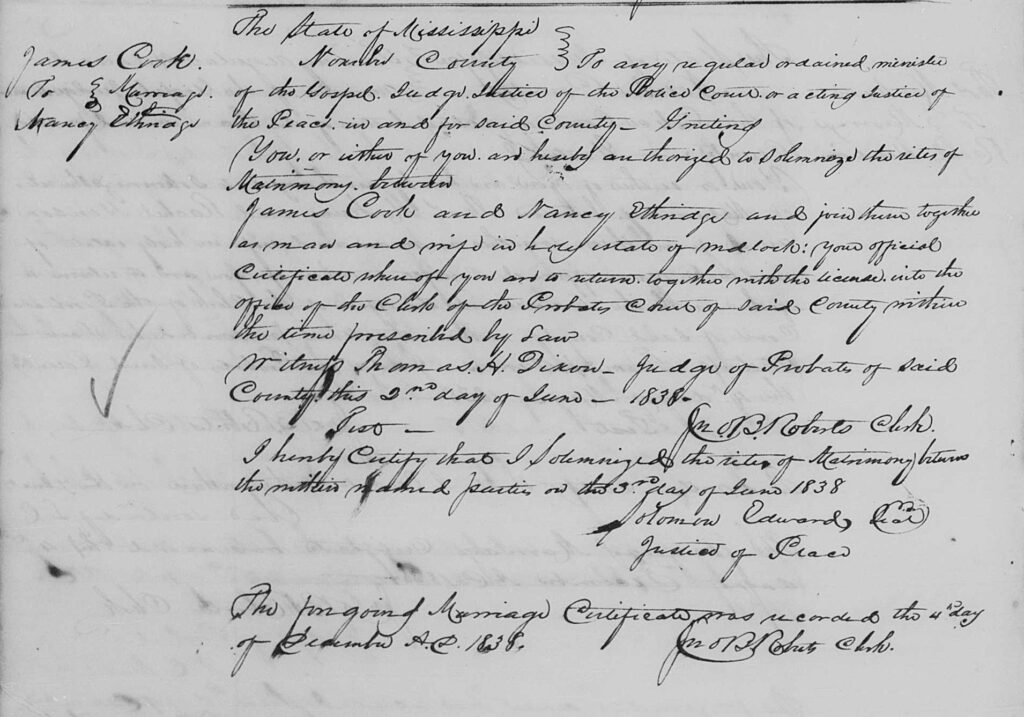 James Cook.
To } Marriage.
Nancy Ethridge
The State of Mississippi
Noxube County } To any regular ordained minister
of the Gospel. Judge. Justice of the Police Court. or acting Justice of
the Peace. in and for said County – Griting
You. or either of you. are hereby authorized to Solemnize the rites of
Matrimony. between
James Cook and Nancy Ethridge and join them together
as man and wife in holy estate of wedlock: your official
Certificate where of you are to return. together with the license. into the
office of the Clerk of the Probate Court of said County within
the time prescribed by Law
Witness Thomas. H. Dixon – Judge of Probate of said
County. this 2nd day of June – 1838 –
Test – Jno. B. Roberts Clerk.
I hereby Certify that I Solemnized the rites of Matrimony between
the within named parties on the 3rd day of June 1838
Solomon Edwards Seal
Justice of Peace
The foregoing Marriage Certificate was recorded the 4th day
of December A.D. 1838. Jno. B. Roberts Clerk.